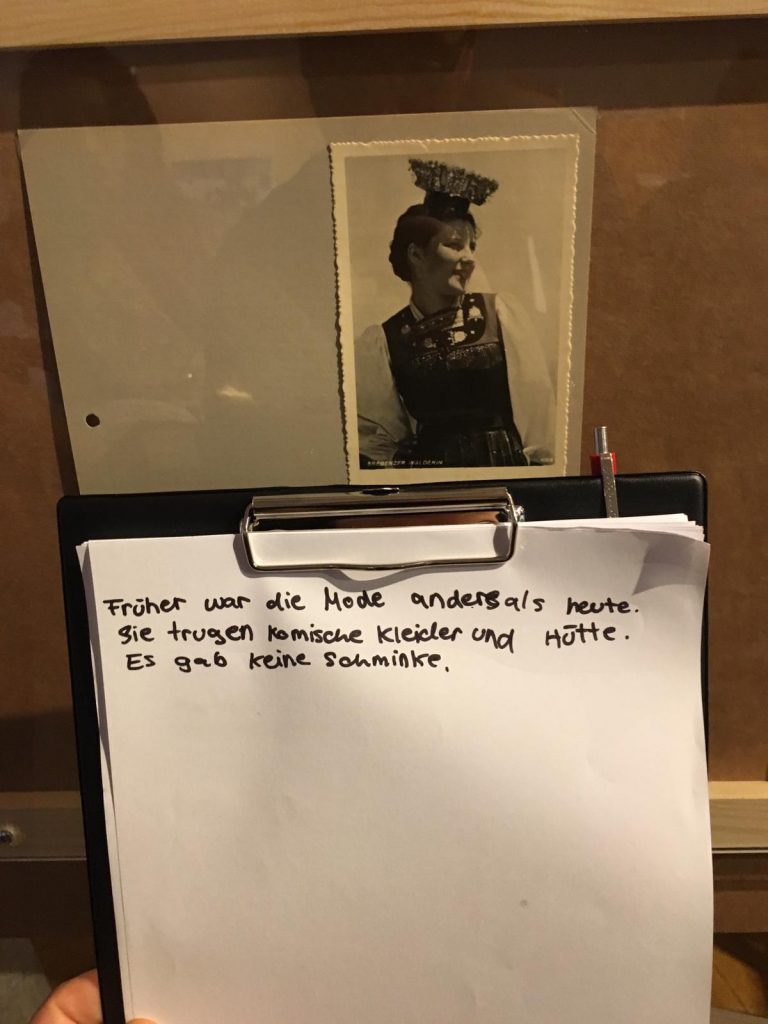 BREGENZER WÄLDERIN
Früher war die Mode anders als heute.
Sie trugen komische Kleider und Hütte.
Es gab keine Schminke.